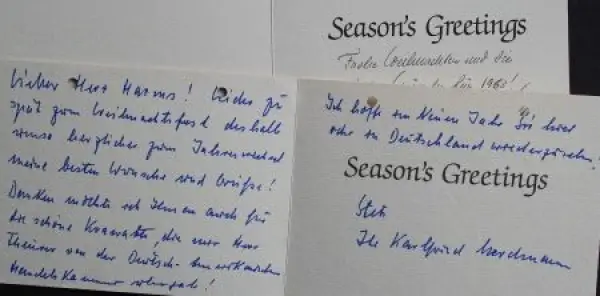 Season's Greetings
Frohe Weihnachten und die
für 1965!
Lieber Herr Harms! Leider zu
spät zum Weihnachtsfest deshalb
umso herzlicher zum Jahreswechsel
meine besten Wünsche und Grüße!
Danken möchte ich Ihnen auch für
die schöne Krawatte, die mir Herr
von der Deutsch-Amerikanischen
Handelskammer übergab!
Ich hoffe im Neuen Jahr Sie hier
oder in Deutschland wiederzusehen!
Season's Greetings
Stets
Ihr Karlfried